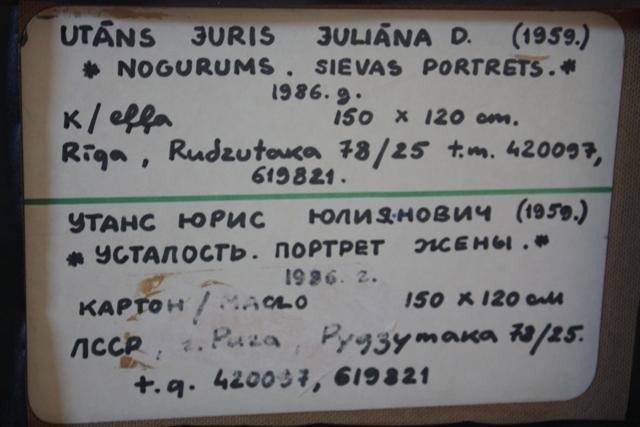 UTĀNS JURIS JULIĀNA D. (1959.)
* NOGURUMS. SIEVAS PORTRETS. *
1986. g.
K/eļļa 150 x 120 cm.
Rīga, Rudzutaka 78/25 t.m. 420097,
619821.
УТАНС ЮРИС ЮЛИЯНОВИЧ (1959.)
* УСТАЛОСТЬ. ПОРТРЕТ ЖЕНЫ. *
1986. г.
КАРТОН/МАСЛО 150 x 120 см
ЛССР, г. Рига, Рудзутака 78/25.
т.д. 420097, 619821